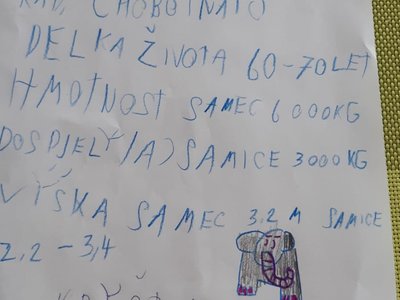 ŘÁD, CHOBOTNATCI
DELKA ŽIVOTA 60-70 LET
HMOTNOST SAMEC 6000KG
DOSPJELÝ/A) SAMICE 3000KG
VÝŠKA SAMEC 3,2 M SAMICE
2,2-3,4